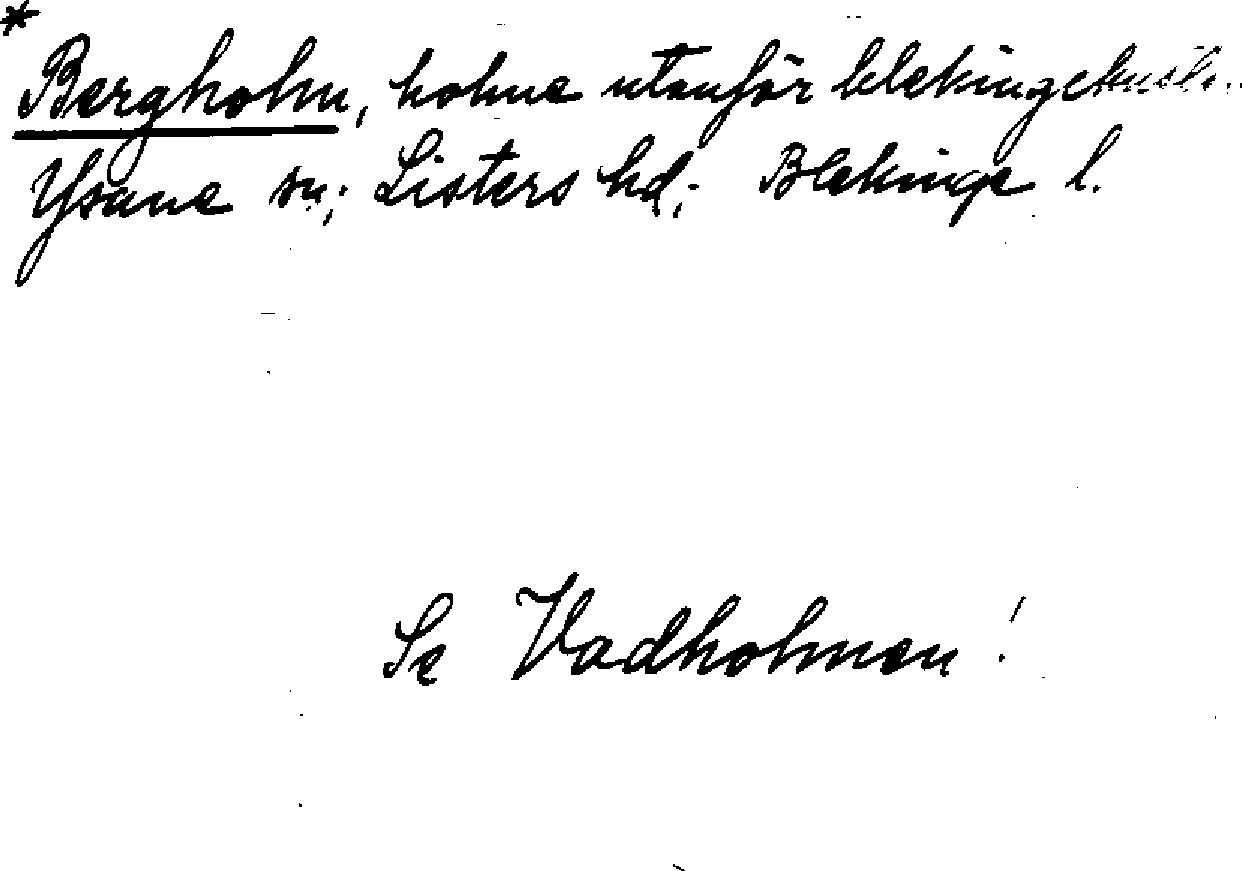 *
Bergholm, holme utanför blekingekusten
Ysane sn; Listers hd; Blekinge l.
Se Vadholmen!